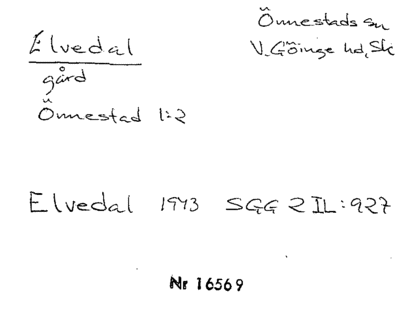 Elvedal
gård
Önnestad 1:2
Önnestads sn
V. Göinge hd, Sk
Elvedal 1943 SGG 2 IL:927
Nr 16569